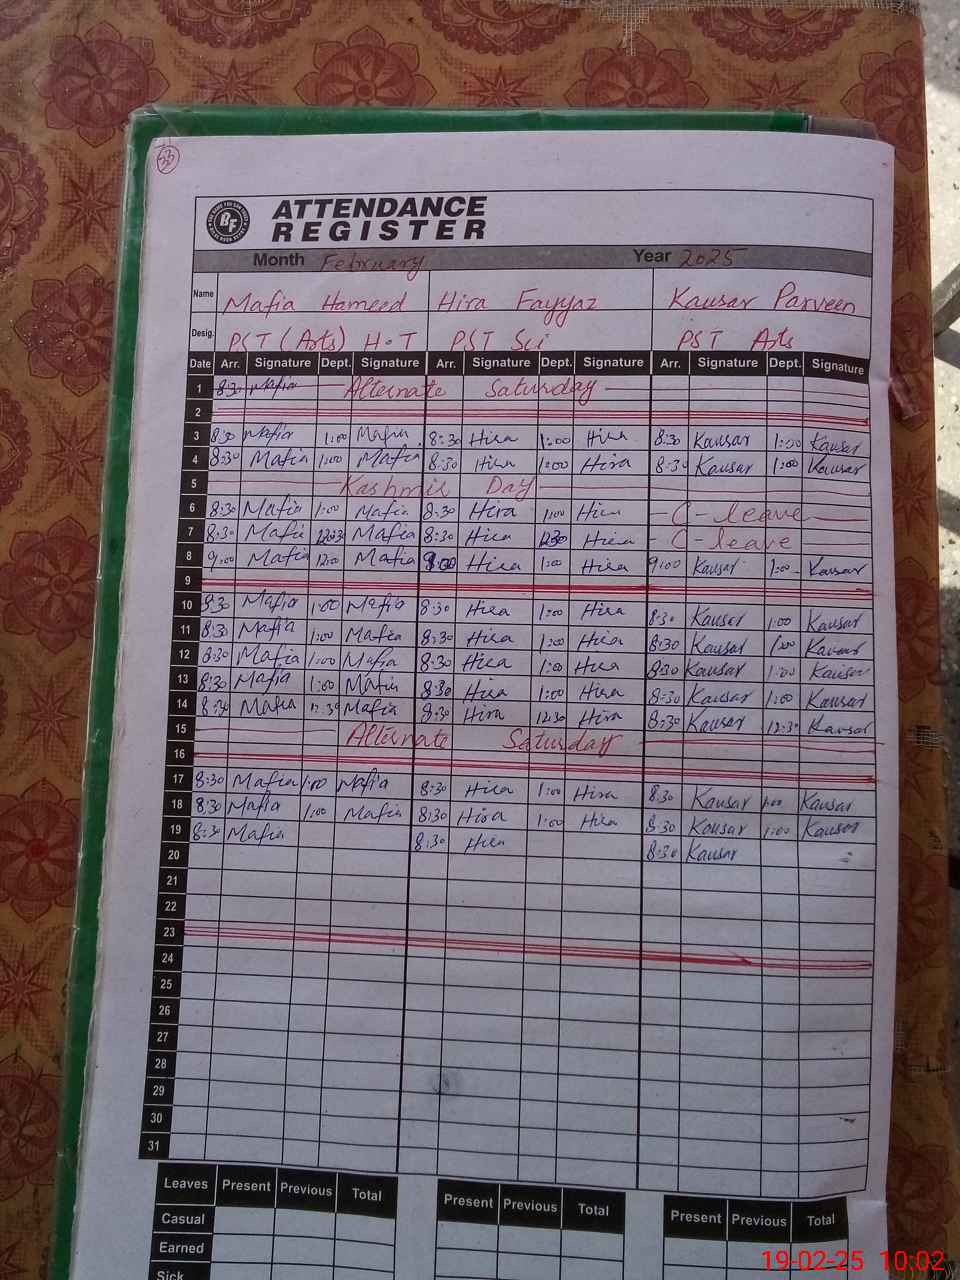 53
BF
ATTENDANCE
REGISTER
Month February Year 2025
Name Mafia Hameed Hira Fayyaz Kausar Parveen
Desig. PST (Arts) H.T PST Sci PST Arts
Date Arr. Signature Dept. Signature Arr. Signature Dept. Signature Arr. Signature Dept. Signature
1 8:30 Mafia Alternate Saturday
2
3 8:30 Mafia 1:00 Mafia 8:30 Hira 1:00 Hira 8:30 Kausar 1:00 Kausar
4 8:30 Mafia 1:00 Mafia 8:30 Hira 1:00 Hira 8:30 Kausar 1:00 Kausar
5 Kashmir Day
6 8:30 Mafia 1:00 Mafia 8:30 Hira 1:00 Hira C-leave
7 8:30 Mafia 12:30 Mafia 8:30 Hira 12:30 Hira C-leave
8 9:00 Mafia 12:00 Mafia 9:00 Hira 1:00 Hira 9:00 Kausar 1:00 Kausar
9
10 8:30 Mafia 1:00 Mafia 8:30 Hira 1:00 Hira 8:30 Kausar 1:00 Kausar
11 8:30 Mafia 1:00 Mafia 8:30 Hira 1:00 Hira 8:30 Kausar 1:00 Kausar
12 8:30 Mafia 1:00 Mafia 8:30 Hira 1:00 Hira 8:30 Kausar 1:00 Kausar
13 8:30 Mafia 1:00 Mafia 8:30 Hira 1:00 Hira 8:30 Kausar 1:00 Kausar
14 8:30 Mafia 12:30 Mafia 8:30 Hira 12:30 Hira 8:30 Kausar 12:30 Kausar
15 Alternate Saturday
16
17 8:30 Mafia 1:00 Mafia 8:30 Hira 1:00 Hira 8:30 Kausar 1:00 Kausar
18 8:30 Mafia 1:00 Mafia 8:30 Hira 1:00 Hira 8:30 Kausar 1:00 Kausar
19 8:30 Mafia 8:30 Hira 8:30 Kausar
20
21
22
23
24
25
26
27
28
29
30
31
Leaves Present Previous Total Present Previous Total Present Previous Total
Casual
Earned
Sick
19-02-25 10:02